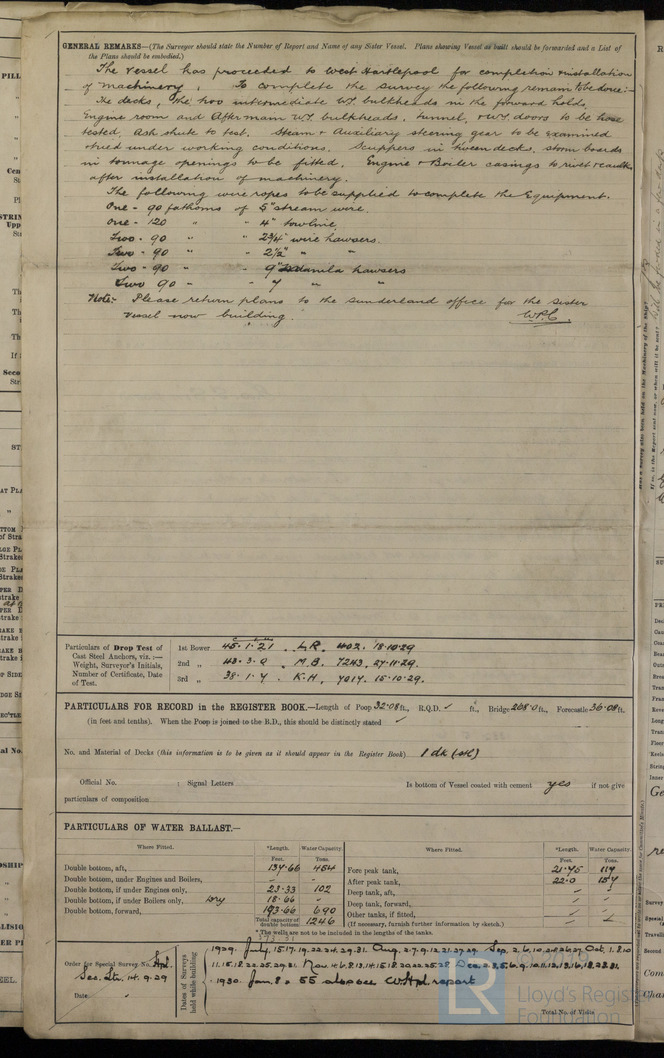 GENERAL REMARKS—(The Surveyor should state the Number of Report and Name of any Sister Vessel. Plans showing Vessel as built should be forwarded and a List of
the Plans should be embodied.)
The vessel has proceeded to West Hartlepool for completion & installation
of machinery. To complete the survey the following remain to be done:-
The decks, the two intermediate WT bulkheads in the forward holds,
Engine room and Aftermain WT bulkheads, tunnel, & WT doors to be hose
tested. Ash shute to test. Steam & Auxiliary steering gear to be examined
& tried under working conditions. Scuppers in tween decks, storm boards
in tonnage openings to be fitted. Engine & Boiler casings to rivet & caulk
after installation of machinery.
The following wire ropes to be supplied to complete the Equipment.
One - 90 fathoms of 5" stream wire.
One - 120 " " 4" towline
Two - 90 " " 2¾" wire hawsers
Two - 90 " - 2½" " "
Two - 90 " - 9" Manila hawsers
Two 90 - - 7 " "
Note:- Please return plans to the Sunderland office for the sister
vessel now building.
Particulars of Drop Test of
Cast Steel Anchors, viz.:—
Weight, Surveyor's Initials,
Number of Certificate, Date
of Test.
1st Bower 45.1.21 . L.R. 402. 18.10.29
2nd " 43.3.0 . M.B. 7243. 27.11.29.
3rd " 38.1.7 . K.H. 7017. 15.10.29.
PARTICULARS FOR RECORD in the REGISTER BOOK.—Length of Poop 32.08 ft., R.Q.D. ✓ ft., Bridge 268.0 ft., Forecastle 36.08 ft.
(in feet and tenths). When the Poop is joined to the B.D., this should be distinctly stated ✓
No. and Material of Decks (this information is to be given as it should appear in the Register Book) 1 dk (stl)
Official No. ; Signal Letters Is bottom of Vessel coated with cement yes if not give
particulars of composition
PARTICULARS OF WATER BALLAST.—
Where Fitted. *Length. Water Capacity. Where Fitted. *Length. Water Capacity.
Feet. Tons. Feet. Tons.
Double bottom, aft, 137.66 454 Fore peak tank, 21.75 119
Double bottom, under Engines and Boilers, - - After peak tank, 22.0 157
Double bottom, if under Engines only, 23.33 102 Deep tank, aft,
Double bottom, if under Boilers only, Dry 18.66 - Deep tank, forward,
Double bottom, forward, 193.66 690 Other tanks, if fitted,
Total capacity of double bottom 1246 (If necessary, furnish further information by sketch.)
* The wells are not to be included in the lengths of the tanks.
373.31
Order for Special Survey No.
14.9.29
Date
Dates of Surveys held while building
1929. July, 15.17.19.22.24.29.31. Aug. 2.7.9.12.21.27.29. Sep. 2.6.10.
1930. Jan. 8 = 55 also see W.Hpl report
Total No. of Visits
LR
© 2019
Lloyd's Register
Foundation